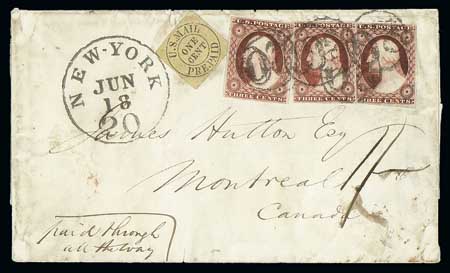 NEW-YORK
JUN
18
U.S. MAIL
ONE
CENT
PREPAID
U.S. POSTAGE
THREE CENTS
U.S. POSTAGE
THREE CENTS
U.S. POSTAGE
THREE CENTS
James Hutton Esq
Montreal
Canada
paid through
all the way